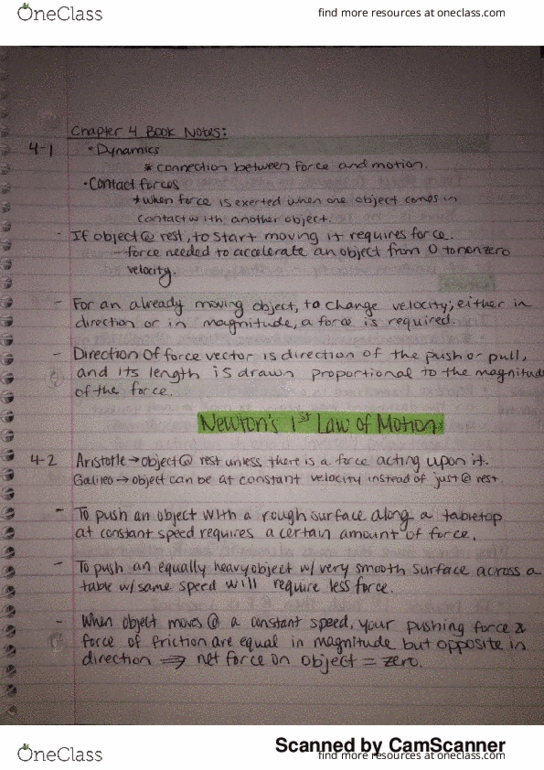 OneClass
find more resources at oneclass.com
Chapter 4 Book Notes:
4-1
• Dynamics
* connection between force and motion.
• Contact forces
* when force is exerted when one object comes in
contact with another object.
- If object @ rest, to start moving it requires force.
- force needed to accelerate an object from 0 to nonzero
velocity.
- For an already moving object, to change velocity; either in
direction or in magnitude, a force is required.
- Direction of force vector is direction of the push or pull,
and its length is drawn proportional to the magnitude
of the force.
Newton's 1st Law of Motion
4-2 Aristotle → object @ rest unless there is a force acting upon it.
Galileo → object can be at constant velocity instead of just @ rest.
- To push an object with a rough surface along a tabletop
at constant speed requires a certain amount of force.
- To push an equally heavy object w/ very smooth surface across a
table w/ same speed will require less force.
- When object moves @ a constant speed, your pushing force &
force of friction are equal in magnitude but opposite in
direction ⇒ net force on object = zero.
Scanned by CamScanner
OneClass
find more resources at oneclass.com